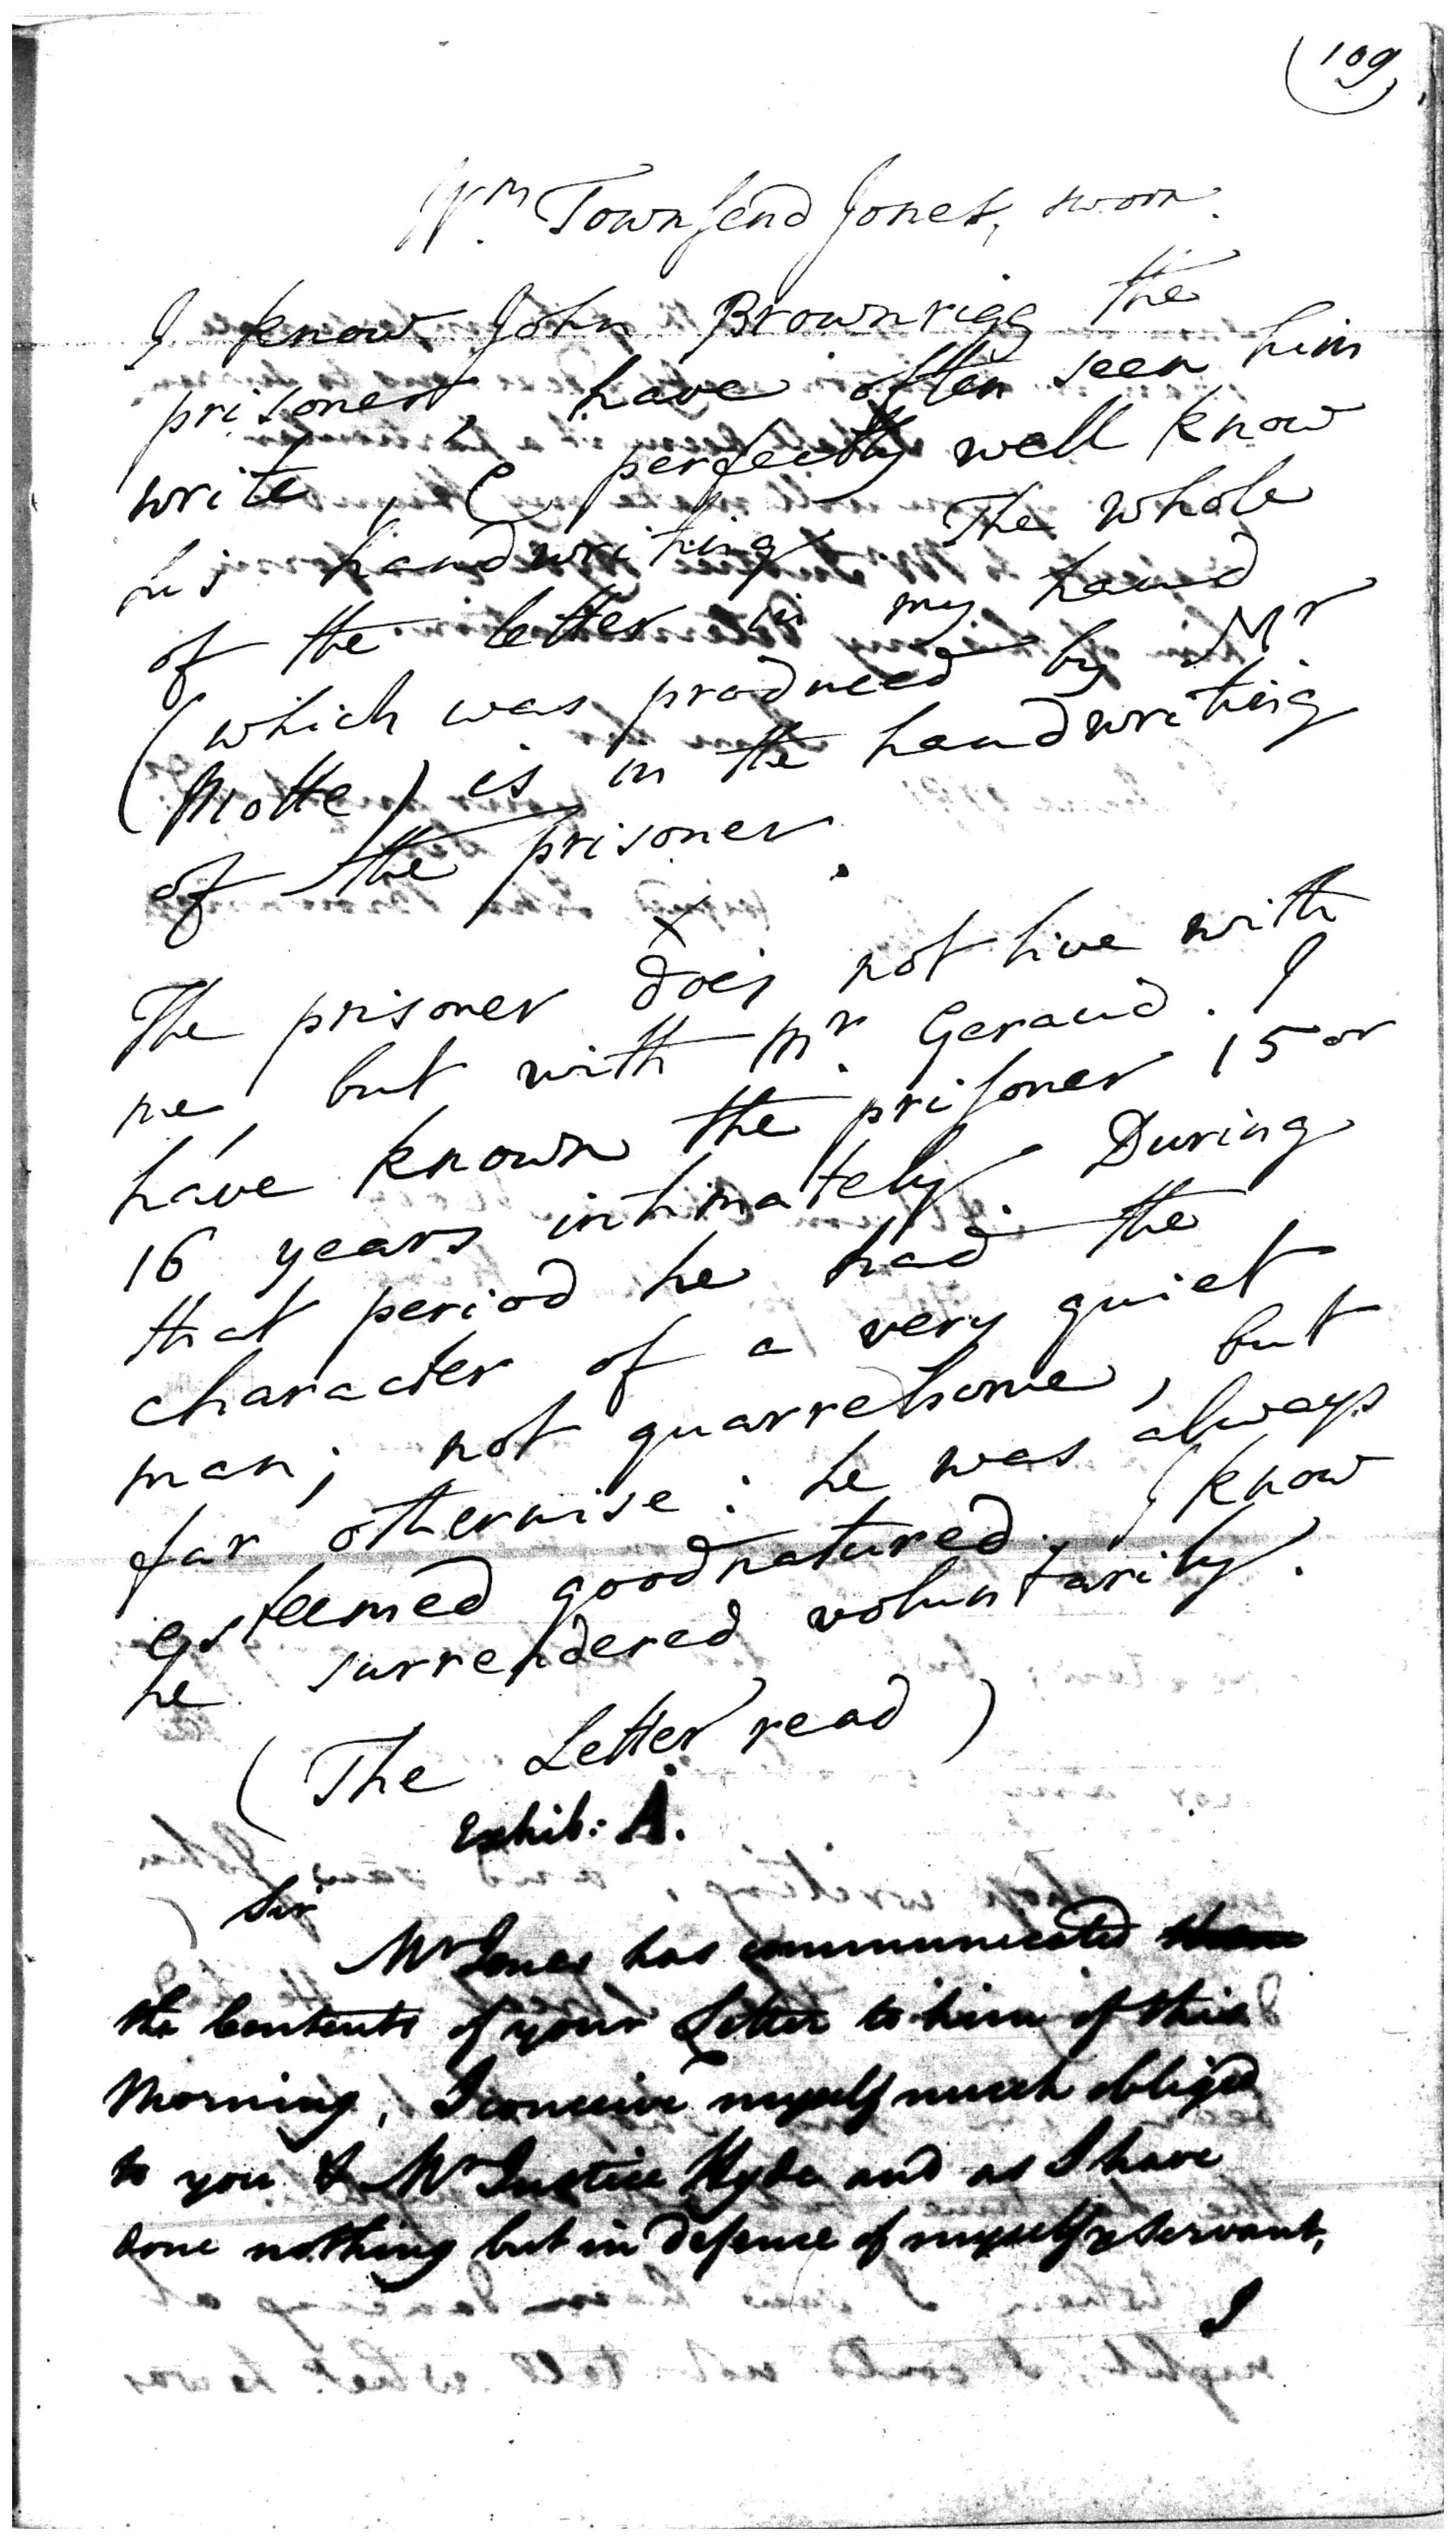 (109)
Wm Townsend Jones, sworn.
I know John Brownrigg the
prisoner, have often seen him
write, & perfectly well know
his handwriting. The whole
of the letter in my hand
(which was produced by Mr
Motte) is in the handwriting
of the prisoner.
x
The prisoner does not live with
me, but with Mr. Geraud. I
have known the prisoner 15 or
16 years intimately. During
that period he had the
character of a very quiet
man; not quarrelsome, but
far otherwise: he was always
esteemed goodnatured. I know
he surrendered voluntarily.
(The Letter read)
Exhib: A.
Sir
Mr Jones has communicated
the Contents of your Letter to him of this
Morning, I conceive myself much obliged
to you & Mr Justice Hyde and as I have
done nothing but in defence of myself & Servant,
I